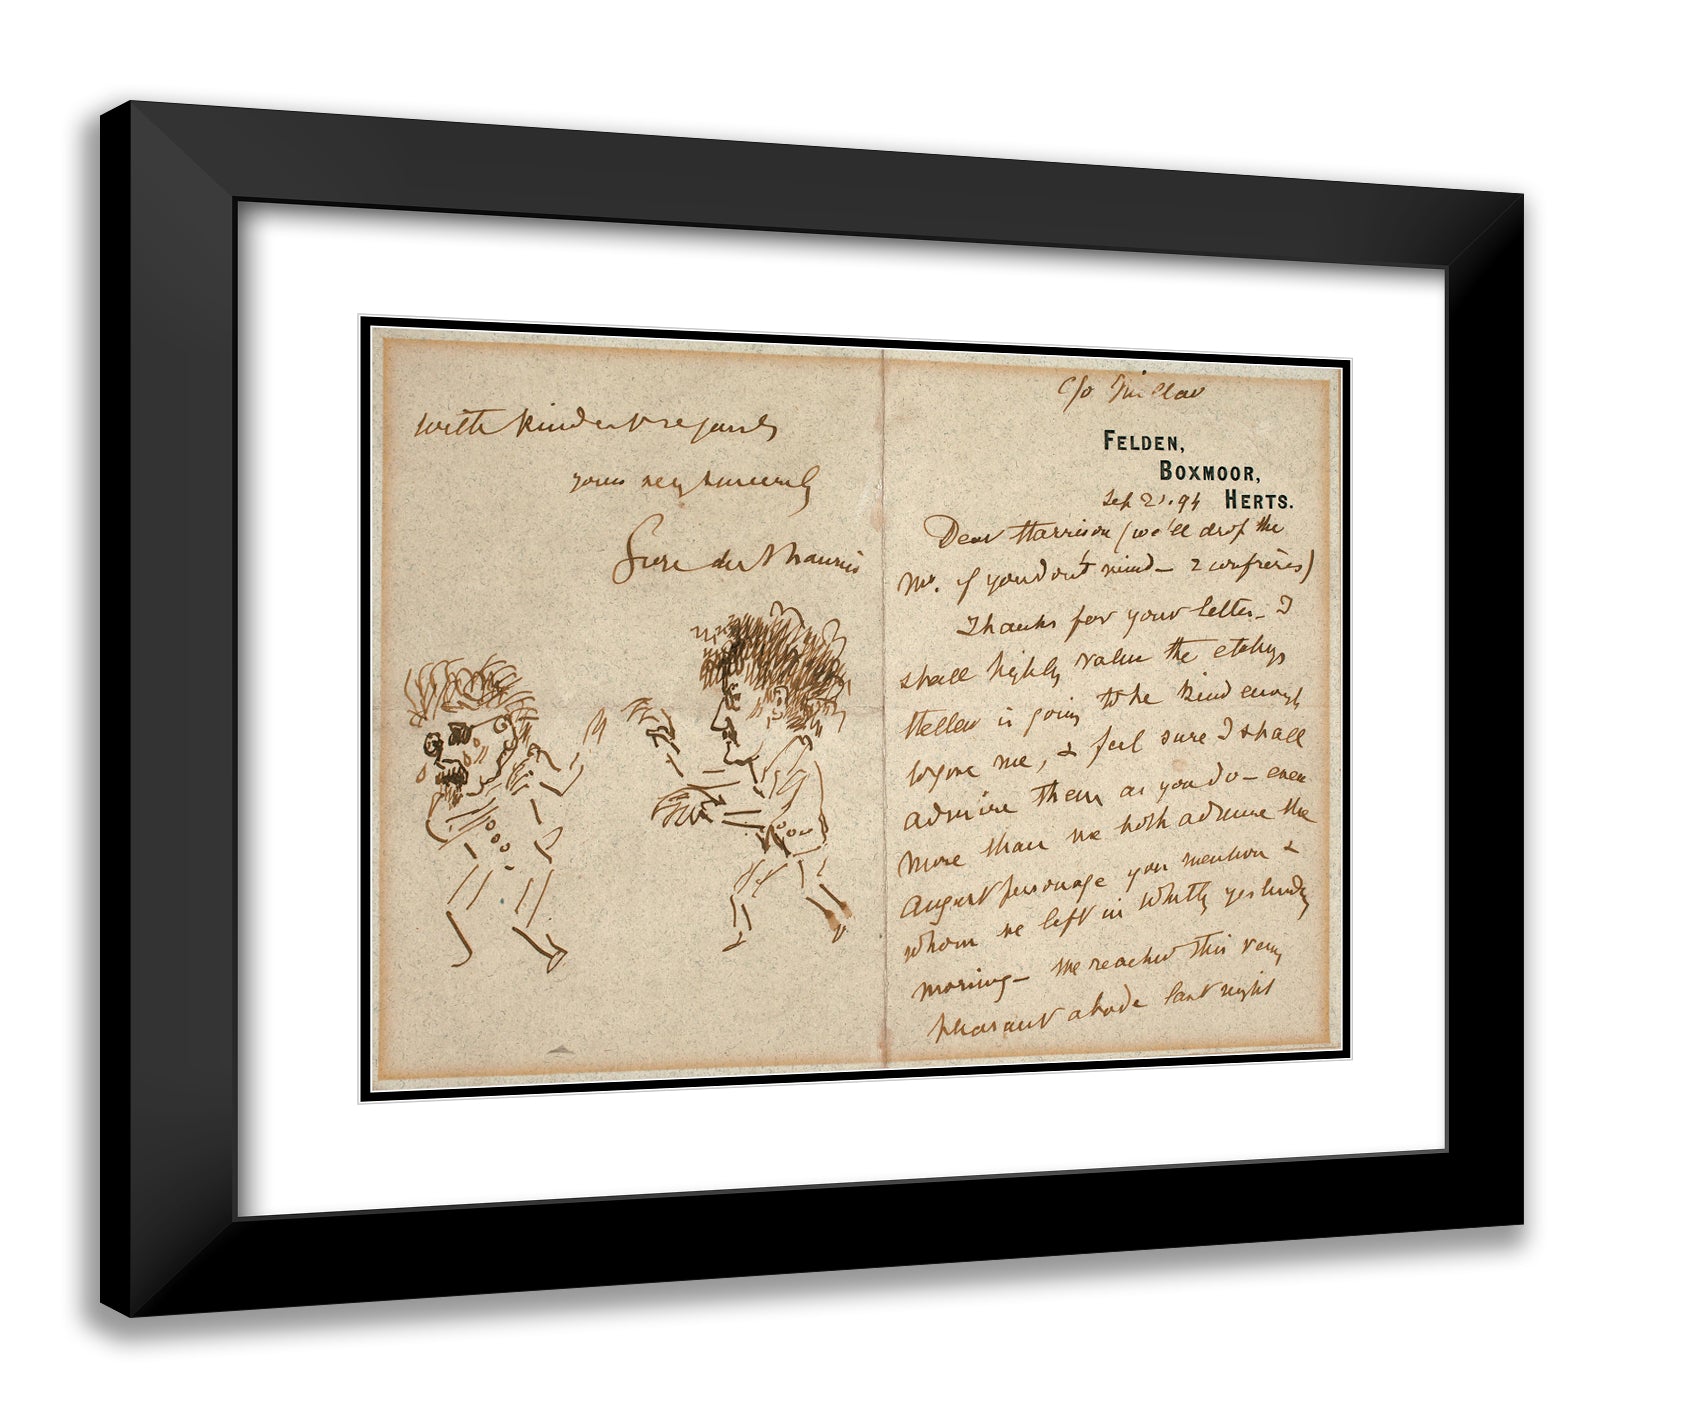 with kindest regards
yours very sincerely
du Maurier
c/o
FELDEN,
BOXMOOR,
Sep 21. 94 HERTS.
Dear Harrison (we'll drop the
Mr. if you don't mind - 2 confrères)
Thanks for your letter - I
shall highly value the etchings
Heller is going to be kind enough
to give me, & feel sure I shall
admire them as you do - even
more than we both admire the
august personage you mention &
whom we left in Whitby yesterday
morning - We reached this very
pleasant abode last night